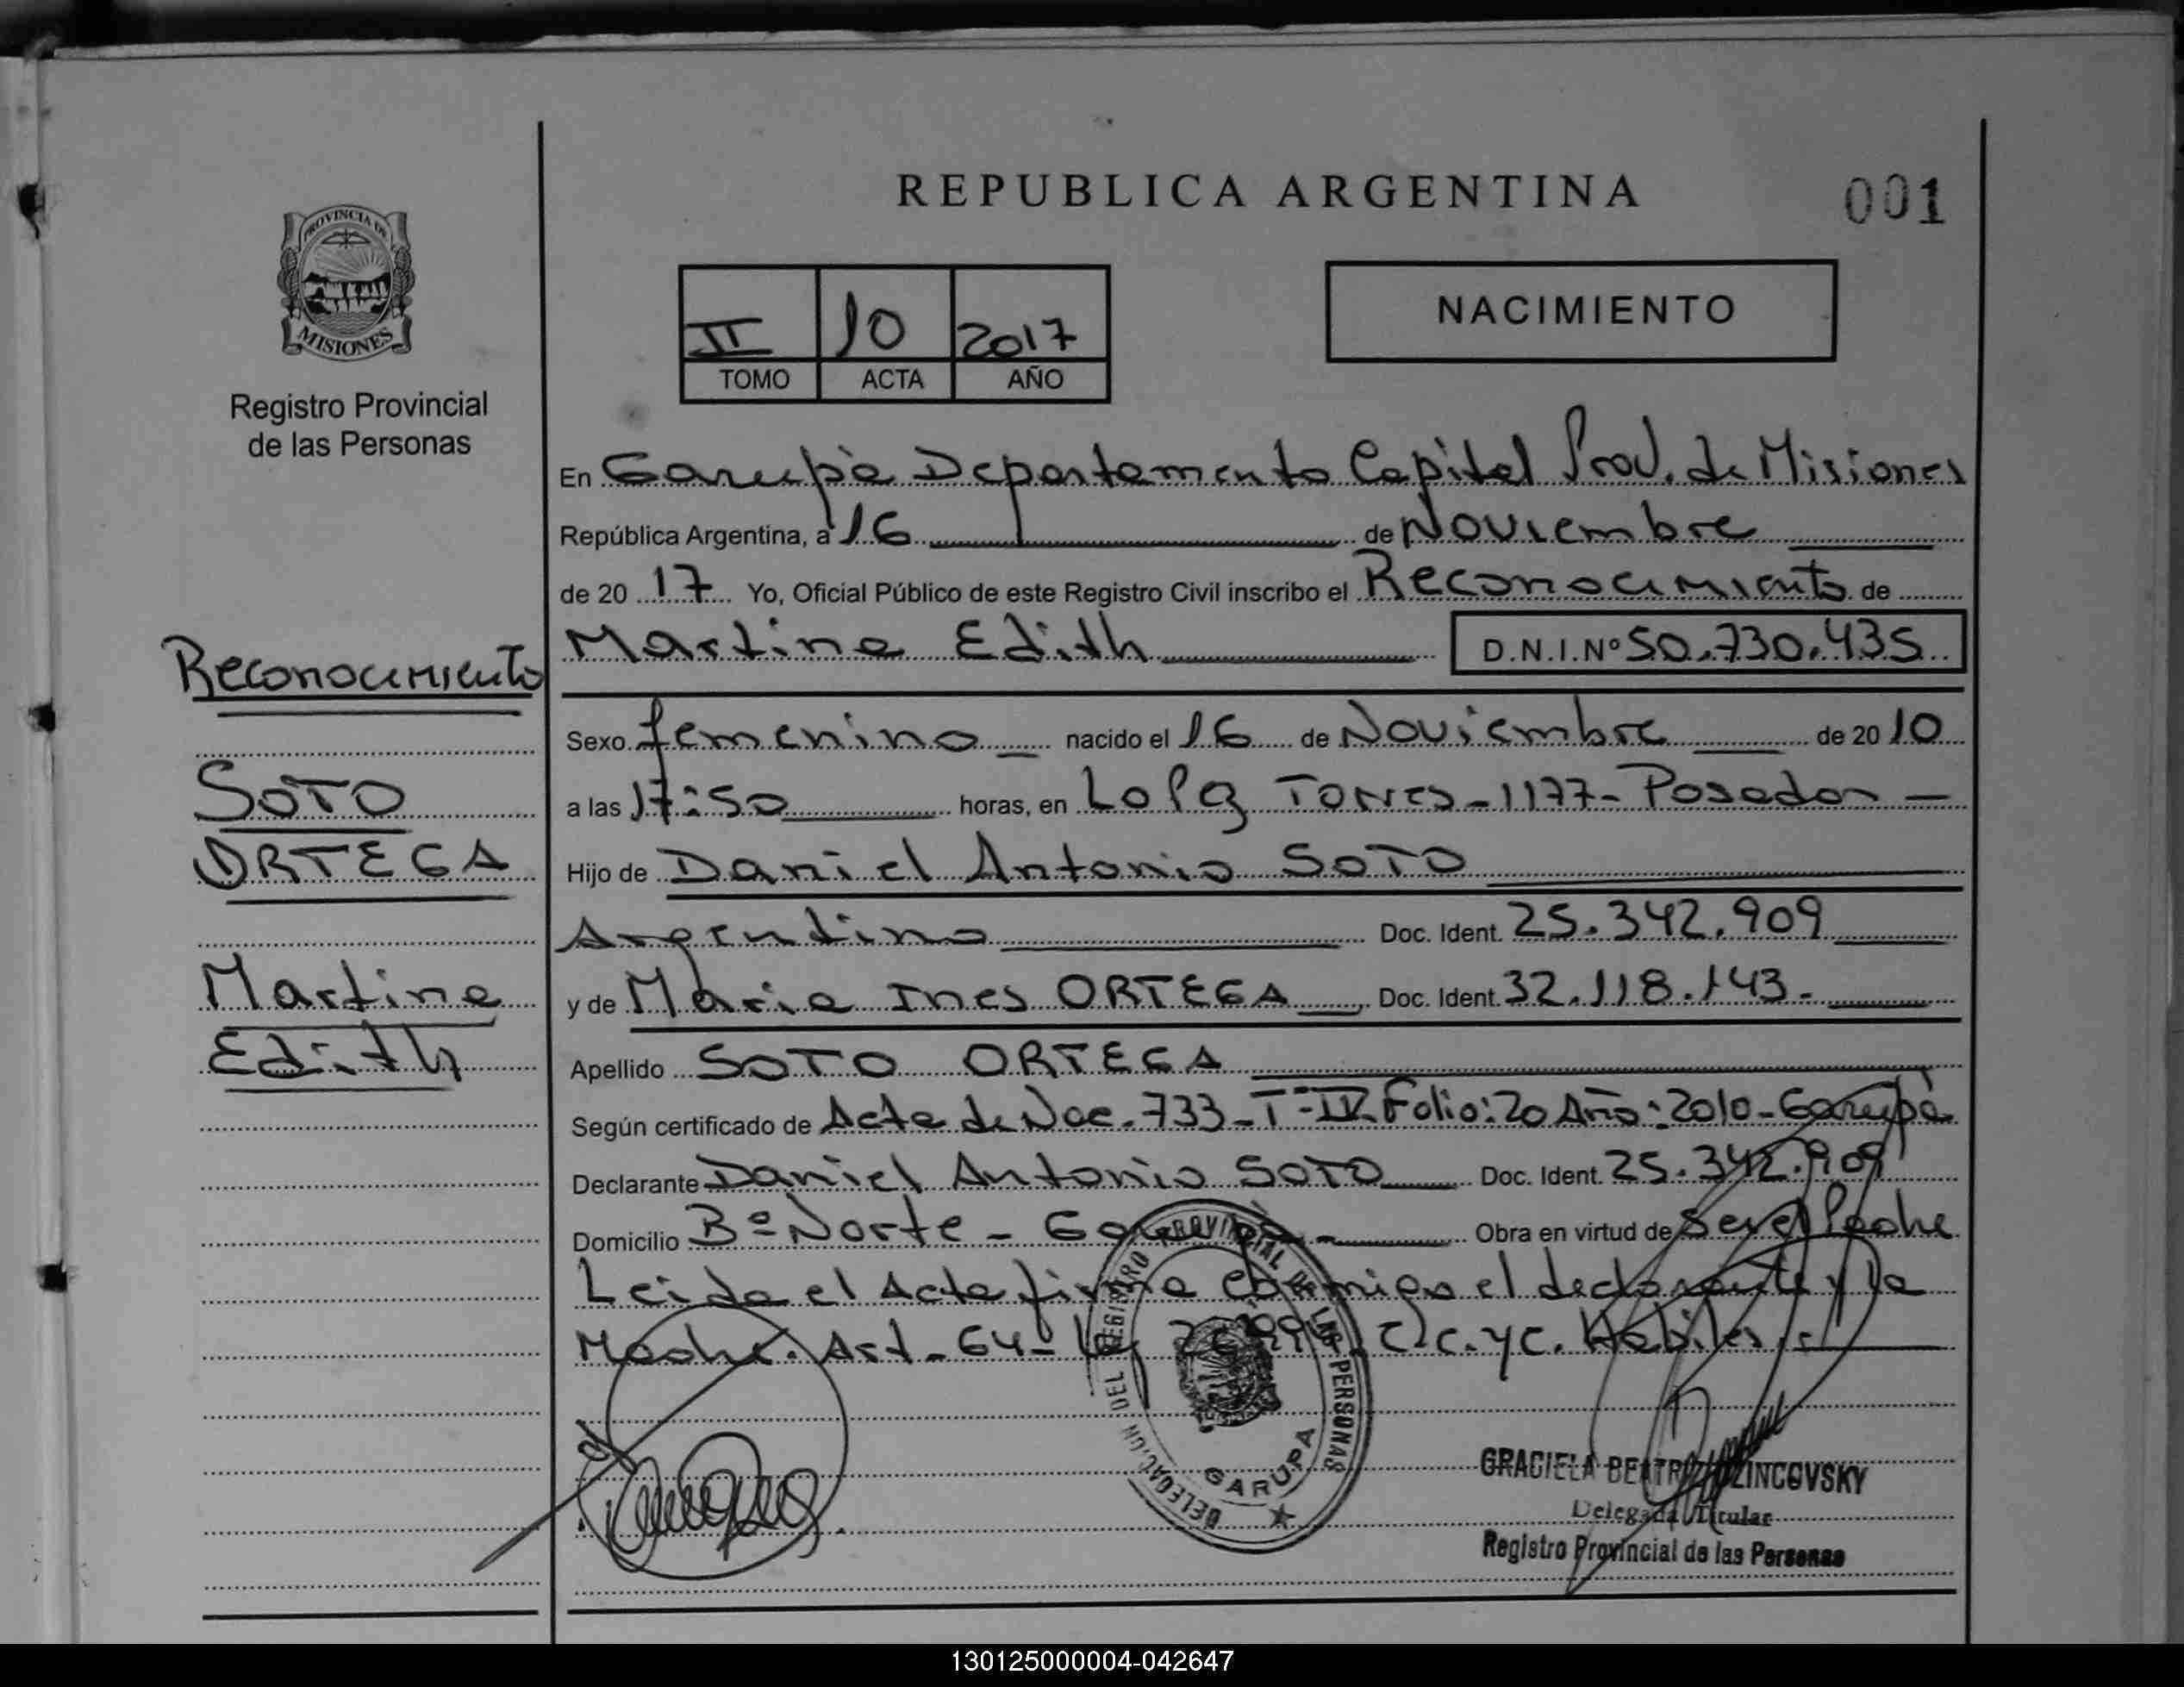 REPUBLICA ARGENTINA
001
PROVINCIA DE
MISIONES
Registro Provincial
de las Personas
II 10 2017
TOMO ACTA AÑO
NACIMIENTO
En Garupá Departamento Capital Prov. de Misiones
República Argentina, a 16 de Noviembre
de 20 17 Yo, Oficial Público de este Registro Civil inscribo el Reconocimiento de
Martina Edith D.N.I.Nº 50.730.435
Reconocimiento
SOTO
ORTEGA
Martina
Edith
Sexo femenino nacido el 16 de Noviembre de 20 10
a las 17:50 horas, en Torres - 1177 - Posadas -
Hijo de Daniel Antonio SOTO
Argentino Doc. Ident. 25.342.909
y de Maria Ines ORTEGA Doc. Ident. 32.118.143.-
Apellido SOTO ORTEGA
Según certificado de Acta de Nac. 733 - Tº - IV Folio: 20 Año: 2010 - Garupá
Declarante Daniel Antonio SOTO Doc. Ident. 25.342.909
Domicilio Bº Norte - Garupá - Obra en virtud de Ser el Padre
Leida el Acta firma conmigo el declarante y la
Madre. Art - 64 - Ley 26994 C.C. y C. Habiles
DELEGACION DEL REGISTRO PROVINCIAL DE LAS PERSONAS
GARUPA
GRACIELA BEATRIZ
Delegada Titular
Registro Provincial de las Personas
130125000004-042647